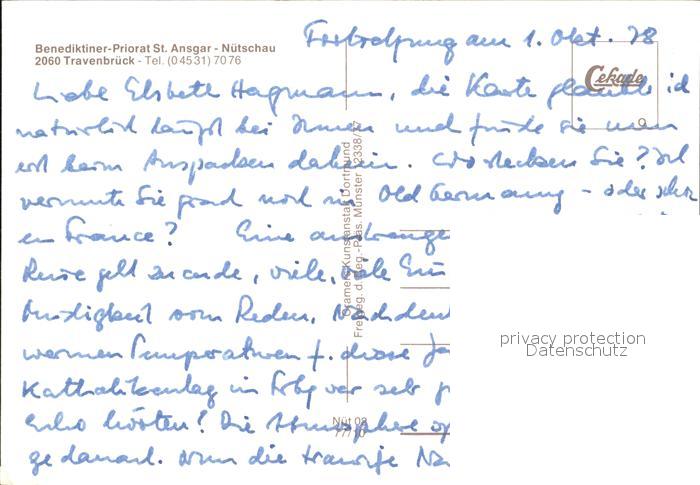 Benediktiner-Priorat St. Ansgar - Nütschau
2060 Travenbrück - Tel. (04531) 7076
am 1. Okt. 78
Cekade
Liebe Elsbeth Hagmann, die Karte glaubte ich
natürlich längst bei Ihnen und finde sie nun
erst beim Auspacken daheim. Wo stecken Sie? Ich
vermute Sie grad noch in Old Germany - oder schon
en France? Eine anstrenge
Reise geht zu ende, viele, viele
Müdigkeit vom Reden, Nachden
warmen Temperaturen f. diese Ja
Katholikentag in Frbg war sehr
Echo hörten! Die Atmosphere
ge danach. Nun die traurige Na
Cramers Kunstanstalt Dortmund
Freigeg. d. Reg.-Präs. Münster 12338/77
Nüt 02
77/10
privacy protection
Datenschutz